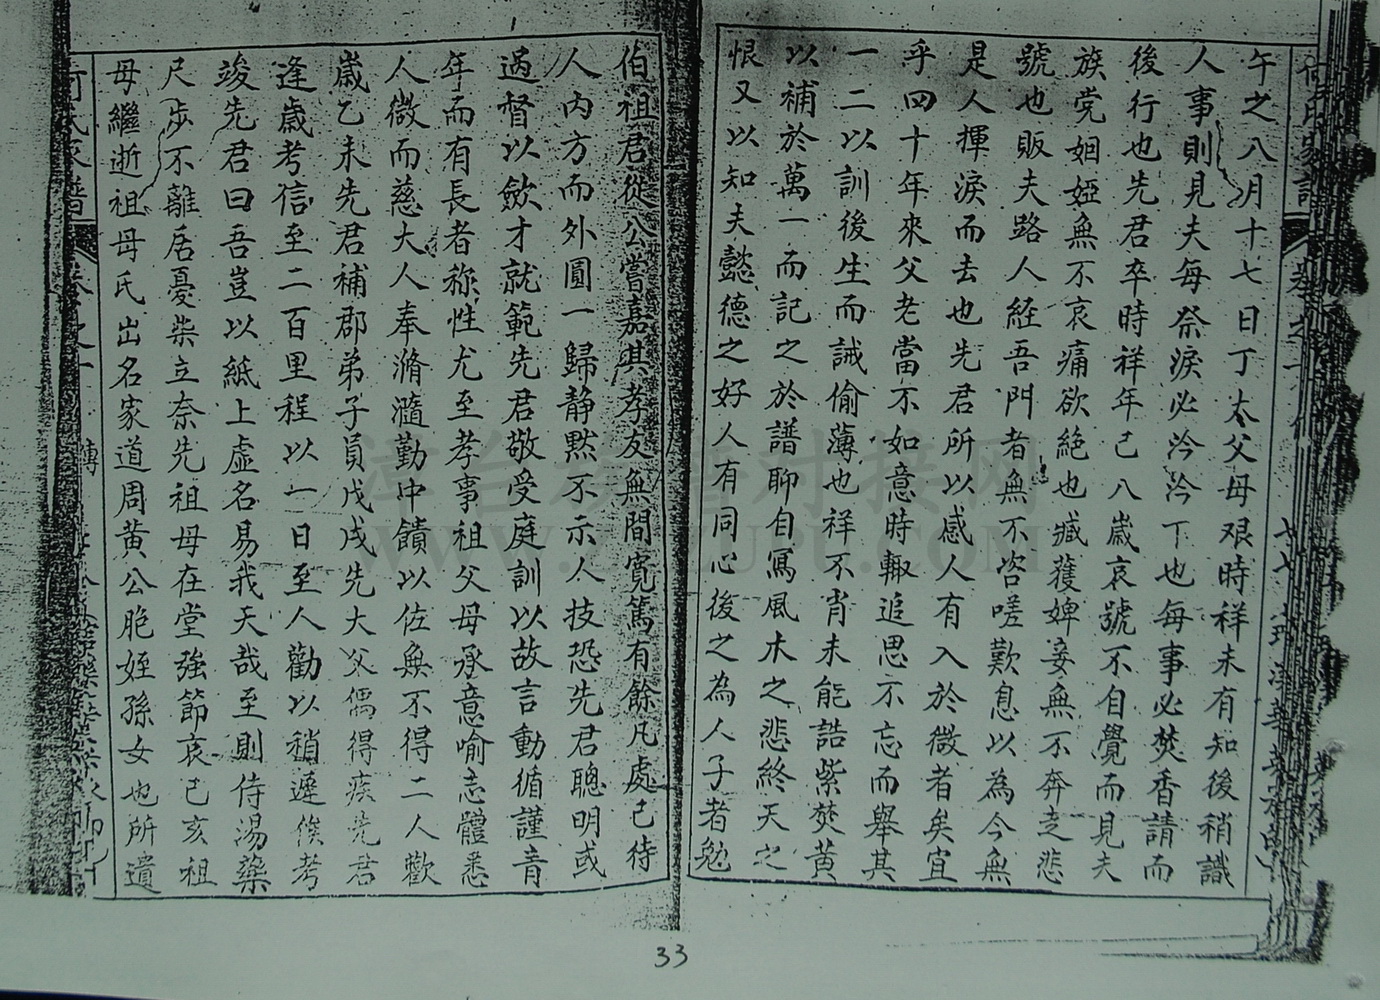 午之八月十七日丁太父母艰時祥未有知後稍識
人事則見夫每祭淚必泠泠丁也每事必焚香請而
後行也先君卒時祥年已八歲哀號不自覺而見夫
族党姻婭無不哀痛欲絶也臧蒦婢妾無不奔走悲
號也販夫路人經吾門者無不咨嗟歎息以為今無
是人揮淚而去也先君所以感人有入於微者矣宜
乎四十年來父老當不如意時輙追思不忘而舉其
一二以訓後生而誡偷薄也祥不肖未能誥紫焚黄
以補於萬一而記之於譜聊自寫風木之悲終天之
恨又以知夫懿德之好人有同心後之為人子者勉
伯祖君從公嘗嘉淇孝友無間寛篤有餘凡處已待
人内方而外圓一歸静黙不示人技恐先君聰明或
過督以斂才就範先君敬受庭訓以故言動循謹音
年而有長者称性尤至孝事祖父母承意喻志體悉
人微而慈大人奉滫瀡勤中饋以佐無不得二人歡
歲乙未先君補郡弟子員戊戌先大父儒得疾先君
逢歲考信至二百里程以一日至人勸以稍遲俟考
竣先君曰吾豈以紙上虚名易我天哉至則侍湯藥
尺步不離居憂柴立奈先祖母在堂強節哀己亥祖
母繼逝祖母氏出名家道周黄公胞姪孫女也所遺
33